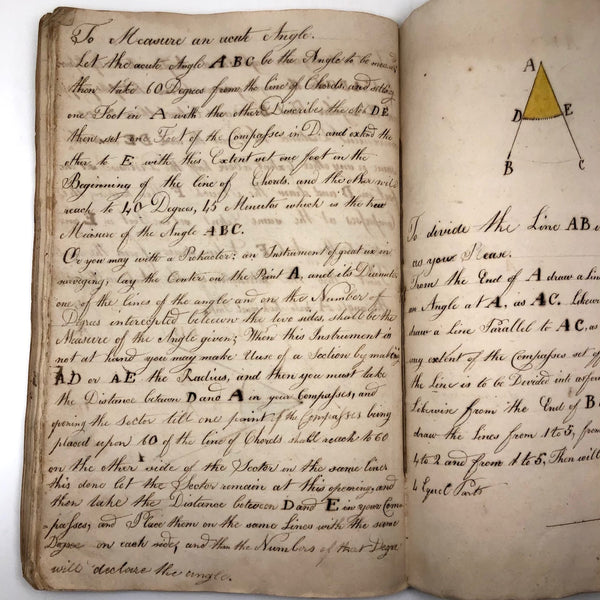 To Measure an acute Angle.
Let the acute Angle ABC be the Angle to be
then take 60 Degrees from the line of Chords and setting
one Foot in A with the other Describe the Arch DE
then set on Foot of the Compasses in D. and extend the
other to E with this Extent set one foot in the
Beginning of the line of Chords, and the other will
reach to 40 Degrees, 45 Minutes which is the true
Measure of the Angle ABC.
Or you may with a Protractor; an Instrument of great use in
surveying; Lay the Center on the Point A, and its Diameter
one of the lines of the angle and on the Number of
Degrees intercepted between the two sides, shall be the
Measure of the Angle given; When this Instrument is
not at hand you may make Use of a Section by making
AD or AE the Radius, and then you must take
the Distance between D and A in your Compasses, and
opening the Sector till one point of the Compasses being
placed upon 60 of the line of Chords shall reach to 60
on the other side of the Sector in the same line
this done let the Sector remain at this opening, and
then take the Distance between D and E in your Com
passes, and Place them on the same Lines with the same
Degree on each side, and then the Numbers of that Degree
will declare the angle.
A
D E
B C
To divide the Line AB
as you Please.
From the End of A draw a Line
an Angle at A, as AC. Likewi
draw a Line Parallel to AC, as
any extent of the Compasses set off
the Line is to be Devided into
Likewise from the End of B
draw the Lines from 1 to 5, from
4 to 2 and from 1 to 5, Then will
4 Equel Parts